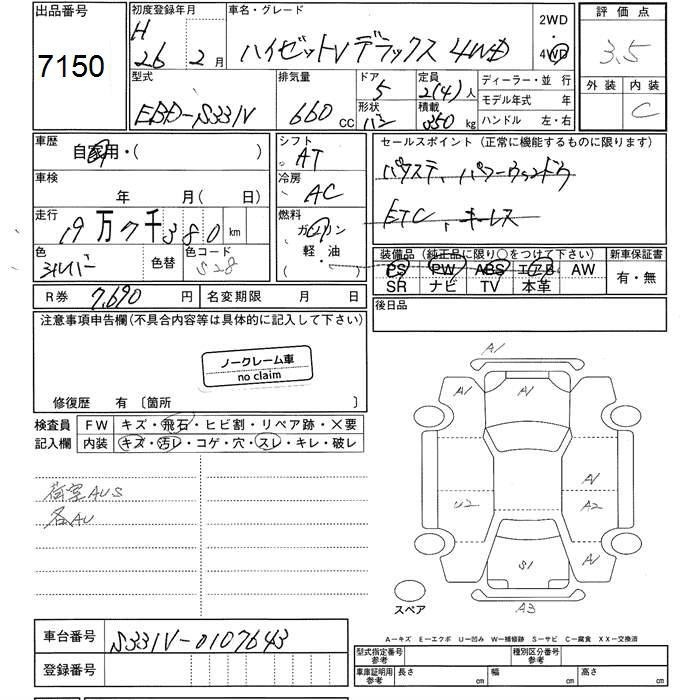 出品番号
7150
初度登録年月
H 26 2月
車名・グレード
ハイゼットV デラックス 4WD
2WD
・
4WD
評価点
3.5
外装 内装
C
型式
EBD-S331V
排気量
660 CC
ドア
5
形状
バン
定員
2(4)人
積載
350 kg
ディーラー・並 行
モデル年式 年
ハンドル 左・右
車歴
自家用・( )
車検
年 月( 日)
走行
19万7千380 km
色
シルバー
色替
色コード
S28
シフト
AT
冷房
AC
燃料
ガソリン
軽・油
セールスポイント (正常に機能するものに限ります)
パワステ、パワーウィンドウ
ETC、キーレス
装備品 (純正品に限り○をつけて下さい)
新車保証書
PS PW ABS エアB AW
SR ナビ TV 本革
有・無
R券 7,690 円
名変期限 月 日
後日品
注意事項申告欄(不具合内容等は具体的に記入して下さい)
ノークレーム車
no claim
修復歴 有 〔箇所 〕
検査員
記入欄
FW キズ・飛石・ヒビ割・リペア跡・×要
内装 キズ・汚レ・コゲ・穴・スレ・キレ・破レ
荷室AUS
各AU
A1
A1
A1
A1
U2
A2
A1
S1
A3
スペア
A-キズ E-エクボ U-凹み W-補修跡 S-サビ C-腐食 XX-交換済
車台番号 S331V-0107643
登録番号
型式指定番号
参考
種別区分番号
参考
車庫証明用
参考
長さ cm
幅 cm
高さ cm